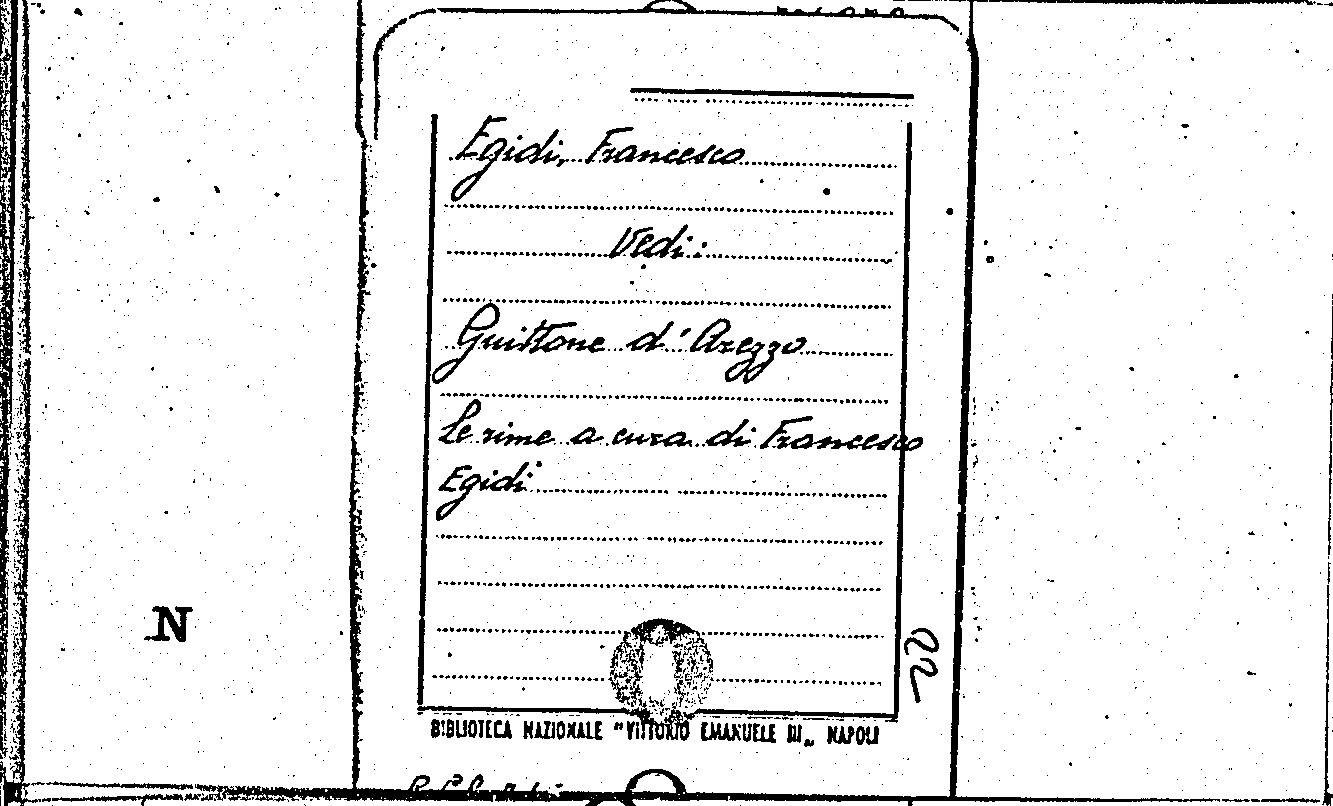 Egidi, Francesco
Vedi:
Guittone d'Arezzo
Le rime a cura di Francesco
Egidi
N
BIBLIOTECA NAZIONALE "VITTORIO EMANUELE III„ NAPOLI